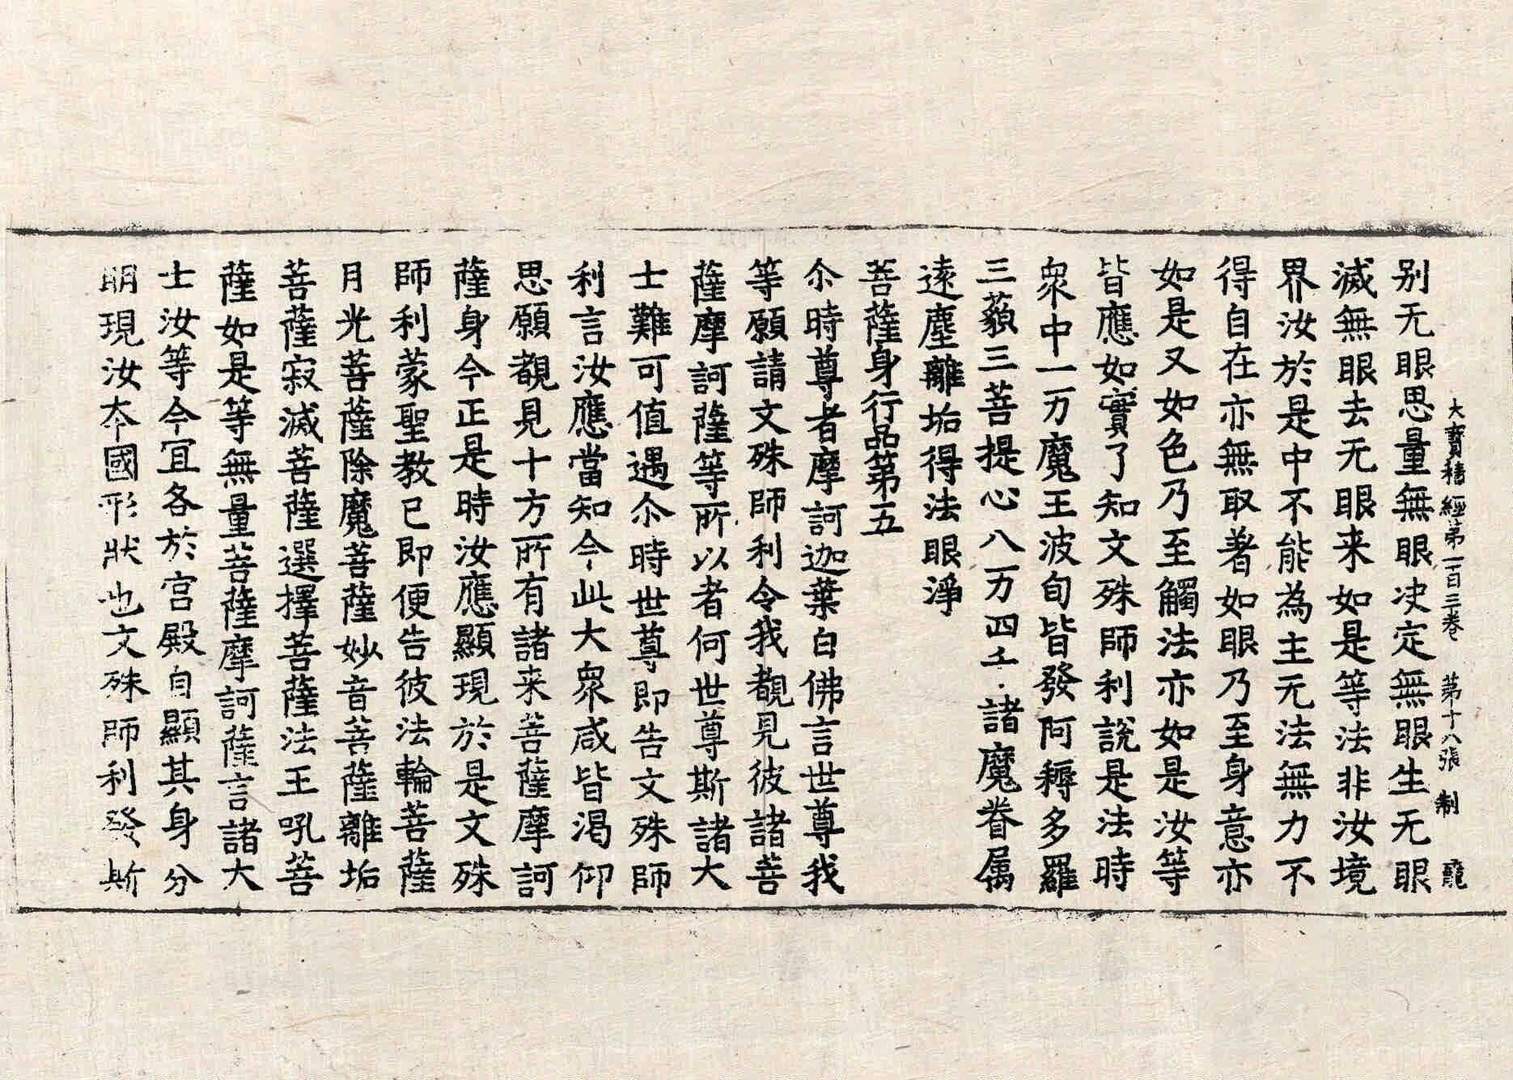 大寶積經第一百三卷 第十八張 制 龍
别无眼思量無眼决定無眼生无眼
滅無眼去无眼来如是等法非汝境
界汝於是中不能為主无法無力不
得自在亦無取著如眼乃至身意亦
如是又如色乃至觸法亦如是汝等
皆應如實了知文殊師利說是法時
衆中一万魔王波旬皆發阿耨多羅
三藐三菩提心八万四千諸魔眷属
逺塵離垢得法眼淨
菩薩身行品第五
尒時尊者摩訶迦葉白佛言世尊我
等願請文殊師利令我覩見彼諸菩
薩摩訶薩等所以者何世尊斯諸大
士難可值遇尒時世尊即告文殊師
利言汝應當知今此大衆咸皆渴仰
思願覩見十方所有諸来菩薩摩訶
薩身今正是時汝應顯現於是文殊
師利蒙聖教已即便告彼法輪菩薩
月光菩薩除魔菩薩妙音菩薩離垢
菩薩寂滅菩薩選擇菩薩法王吼菩
薩如是等無量菩薩摩訶薩言諸大
士汝等今宜各於宫殿自顯其身分
明現汝本國形状也文殊師利發斯